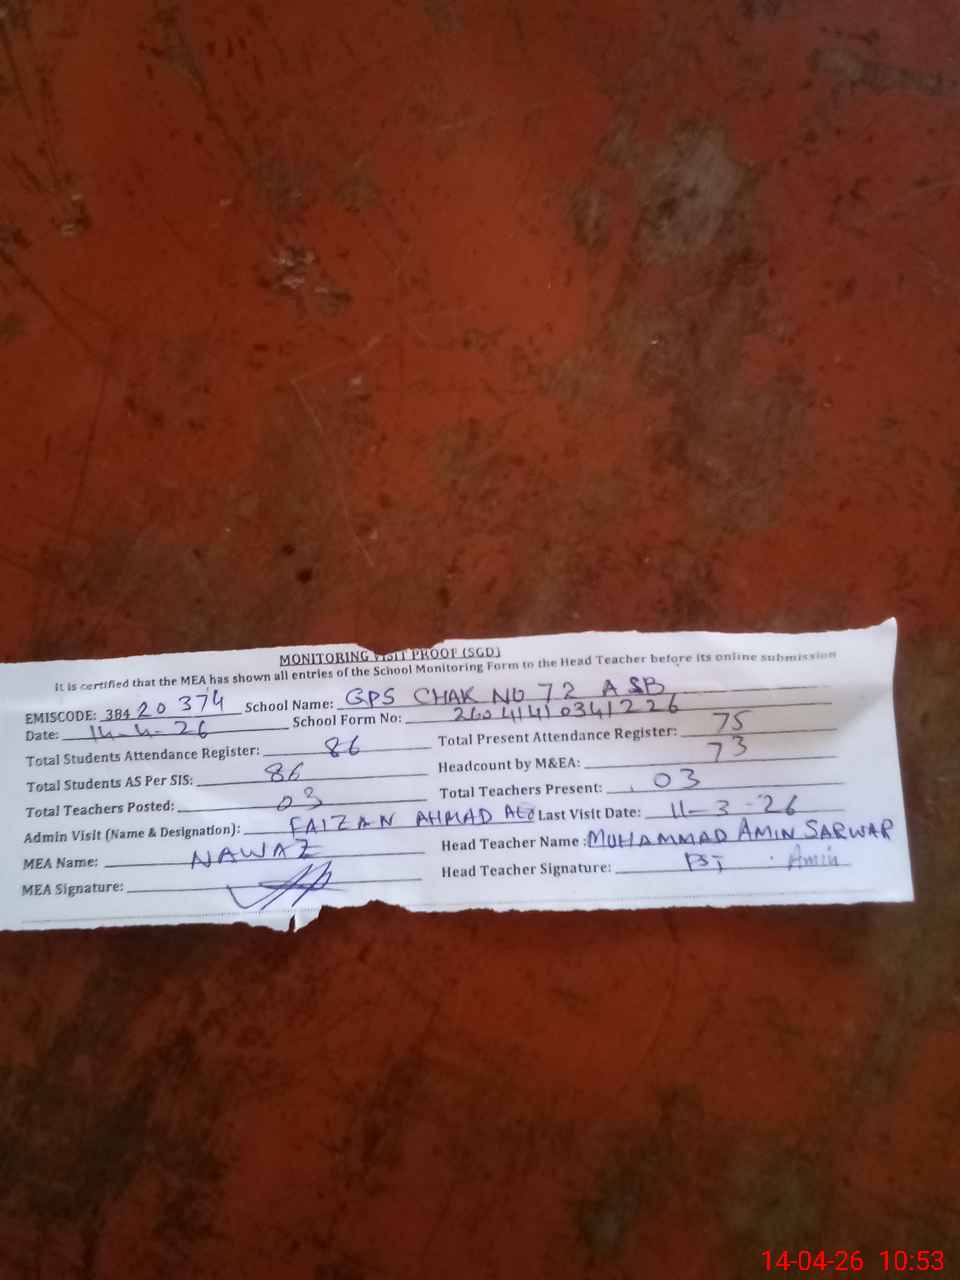 MONITORING VISIT PROOF (SGD)
It is certified that the MEA has shown all entries of the School Monitoring Form to the Head Teacher before its online submission
EMISCODE: 384 20 374 School Name: GPS CHAK NO 72 A SB
Date: 14-4-26 School Form No: 26041410341226
Total Students Attendance Register: 86 Total Present Attendance Register: 75
Total Students AS Per SIS: 86 Headcount by M&EA: 73
Total Teachers Posted: 03 Total Teachers Present: 03
Admin Visit (Name & Designation): FAIZAN AHMAD Last Visit Date: 11-3-26
MEA Name: NAWAZ Head Teacher Name: MUHAMMAD AMIN SARWAR
MEA Signature: Head Teacher Signature: Amin
14-04-26 10:53